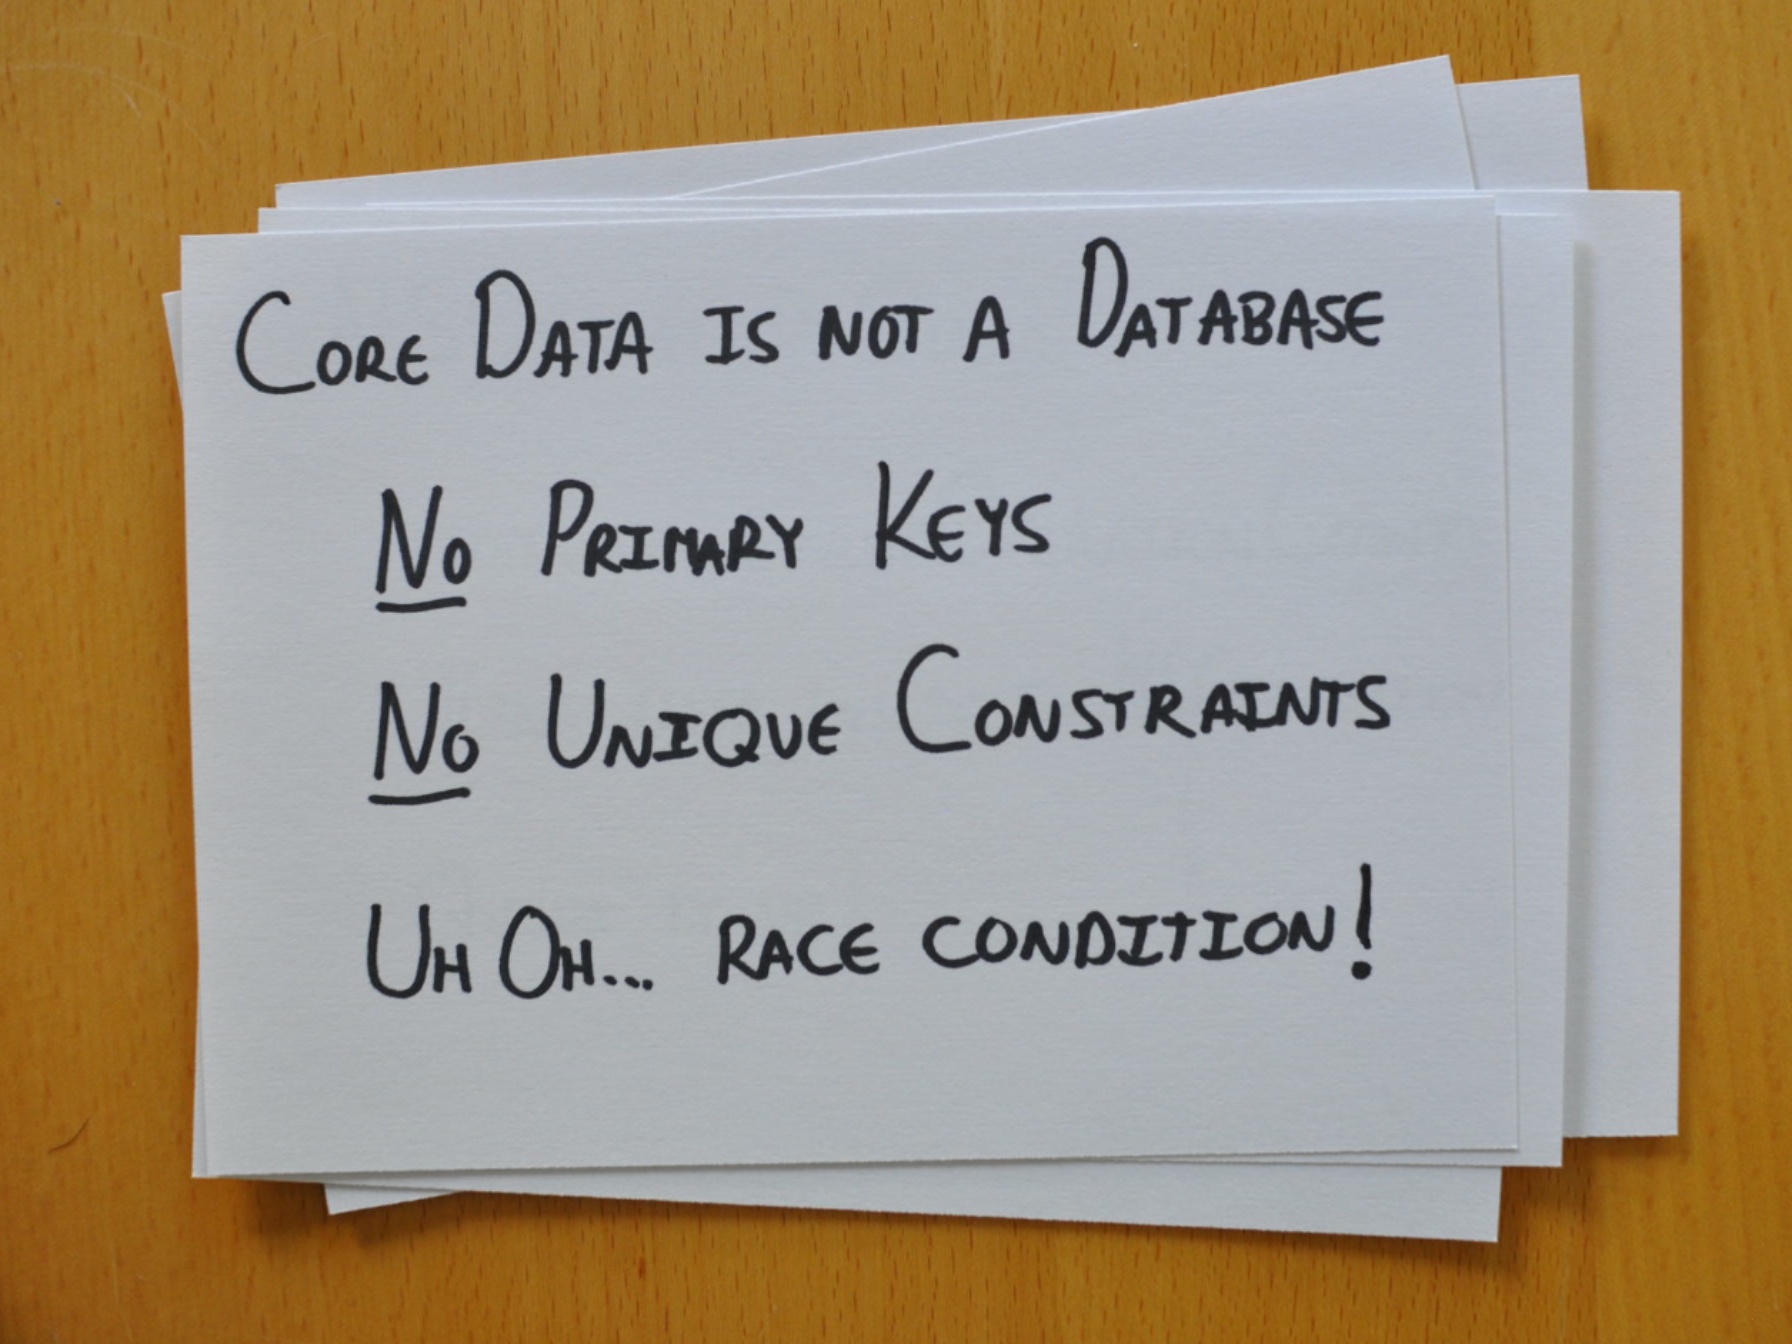 Core Data is not a Database
No Primary Keys
No Unique Constraints
Uh Oh... race condition!